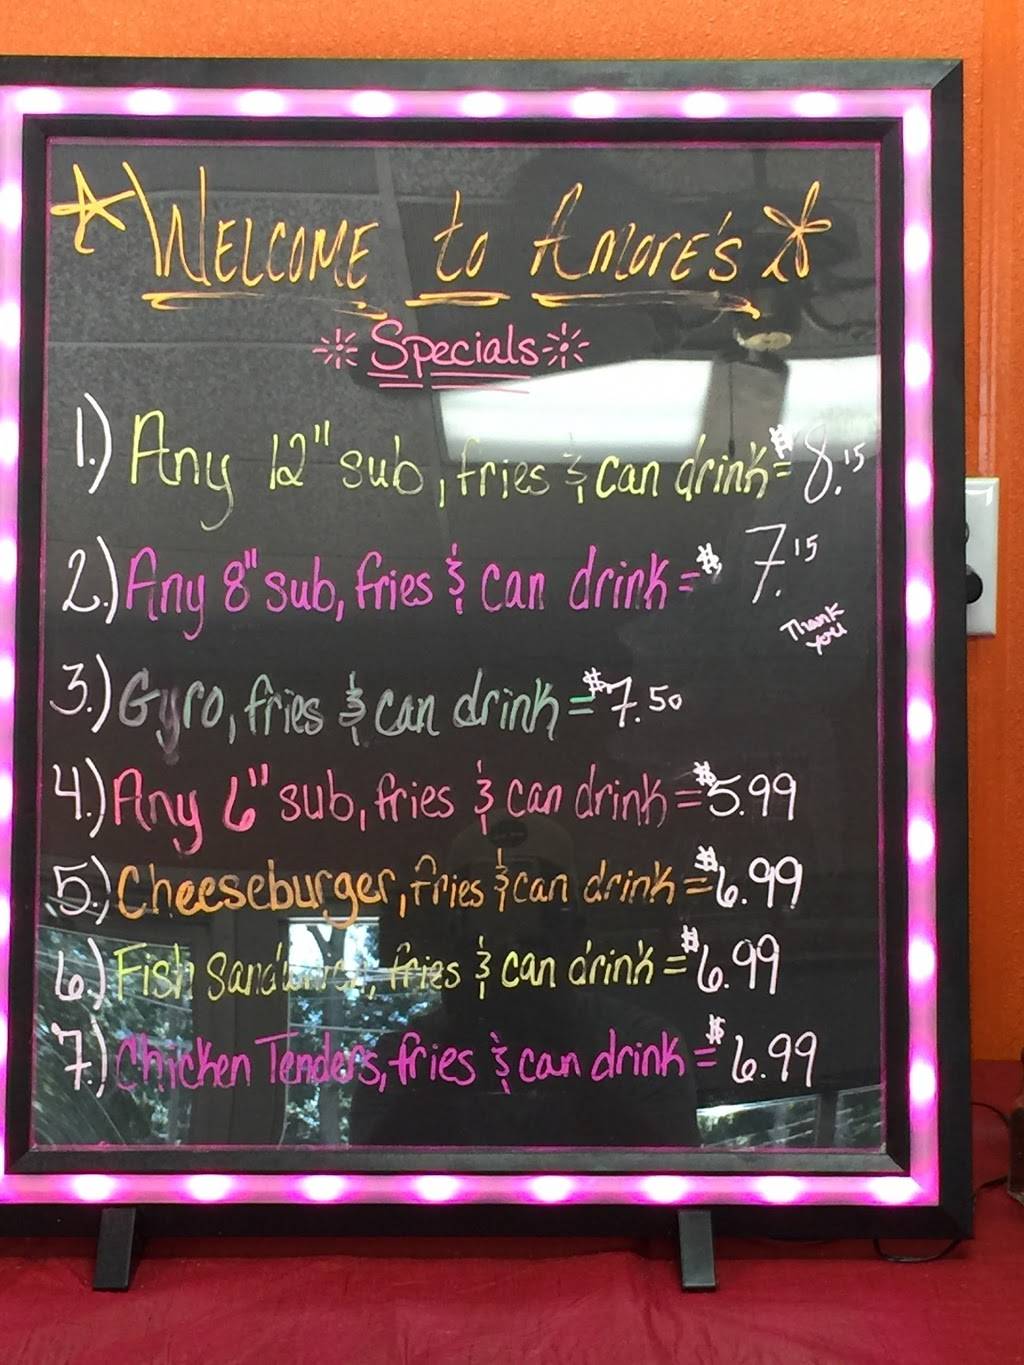 WELCOME to Amore's
Specials
1.) Any 12" sub, fries & can drink = $8.15
2.) Any 8" sub, fries & can drink = $7.15
Thank you
3.) Gyro, fries & can drink = $7.50
4.) Any 6" sub, fries & can drink = $5.99
5.) Cheeseburger, fries & can drink = $6.99
6.) Fish Sandwich, fries & can drink = $6.99
7.) Chicken Tenders, fries & can drink = $6.99